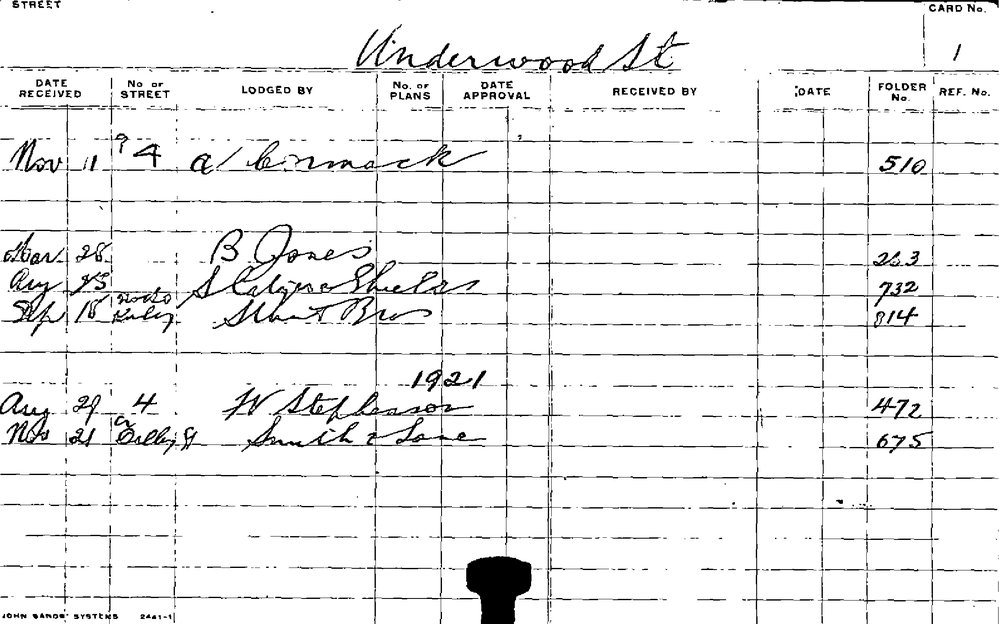 STREET CARD No.
Underwood St 1
DATE RECEIVED No OF STREET LODGED BY No. OF PLANS DATE APPROVAL RECEIVED BY DATE FOLDER No. REF. No.
Nov 11 4 510
Mar 28 B Jones
Aug 25 Shields 732
Sep 18 Bros 814
1921
Aug 29 4 W Stephenson 472
Nov 21 St Smith & 675
JOHN SANDS SYSTEMS 2441-1